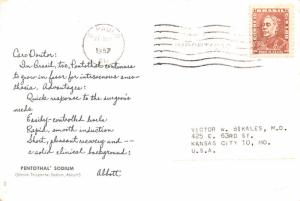 Care Doutor:
In Brasil, too, Pentothal continues
to grow in favor for intravenous anes-
thesia. Advantages:
Quick response to the surgeon's
needs
Easily-controlled levels
Rapid, smooth induction
Short, pleasant recovery and --
a solid clinical background:
Abbott
PENTOTHAL® SODIUM
(Sterile Thiopental Sodium, Abbott)
1957
BRASIL
VICTOR W. BEKALES, M.D.
425 E. 63RD ST.
KANSAS CITY 10, MO.
U.S.A.